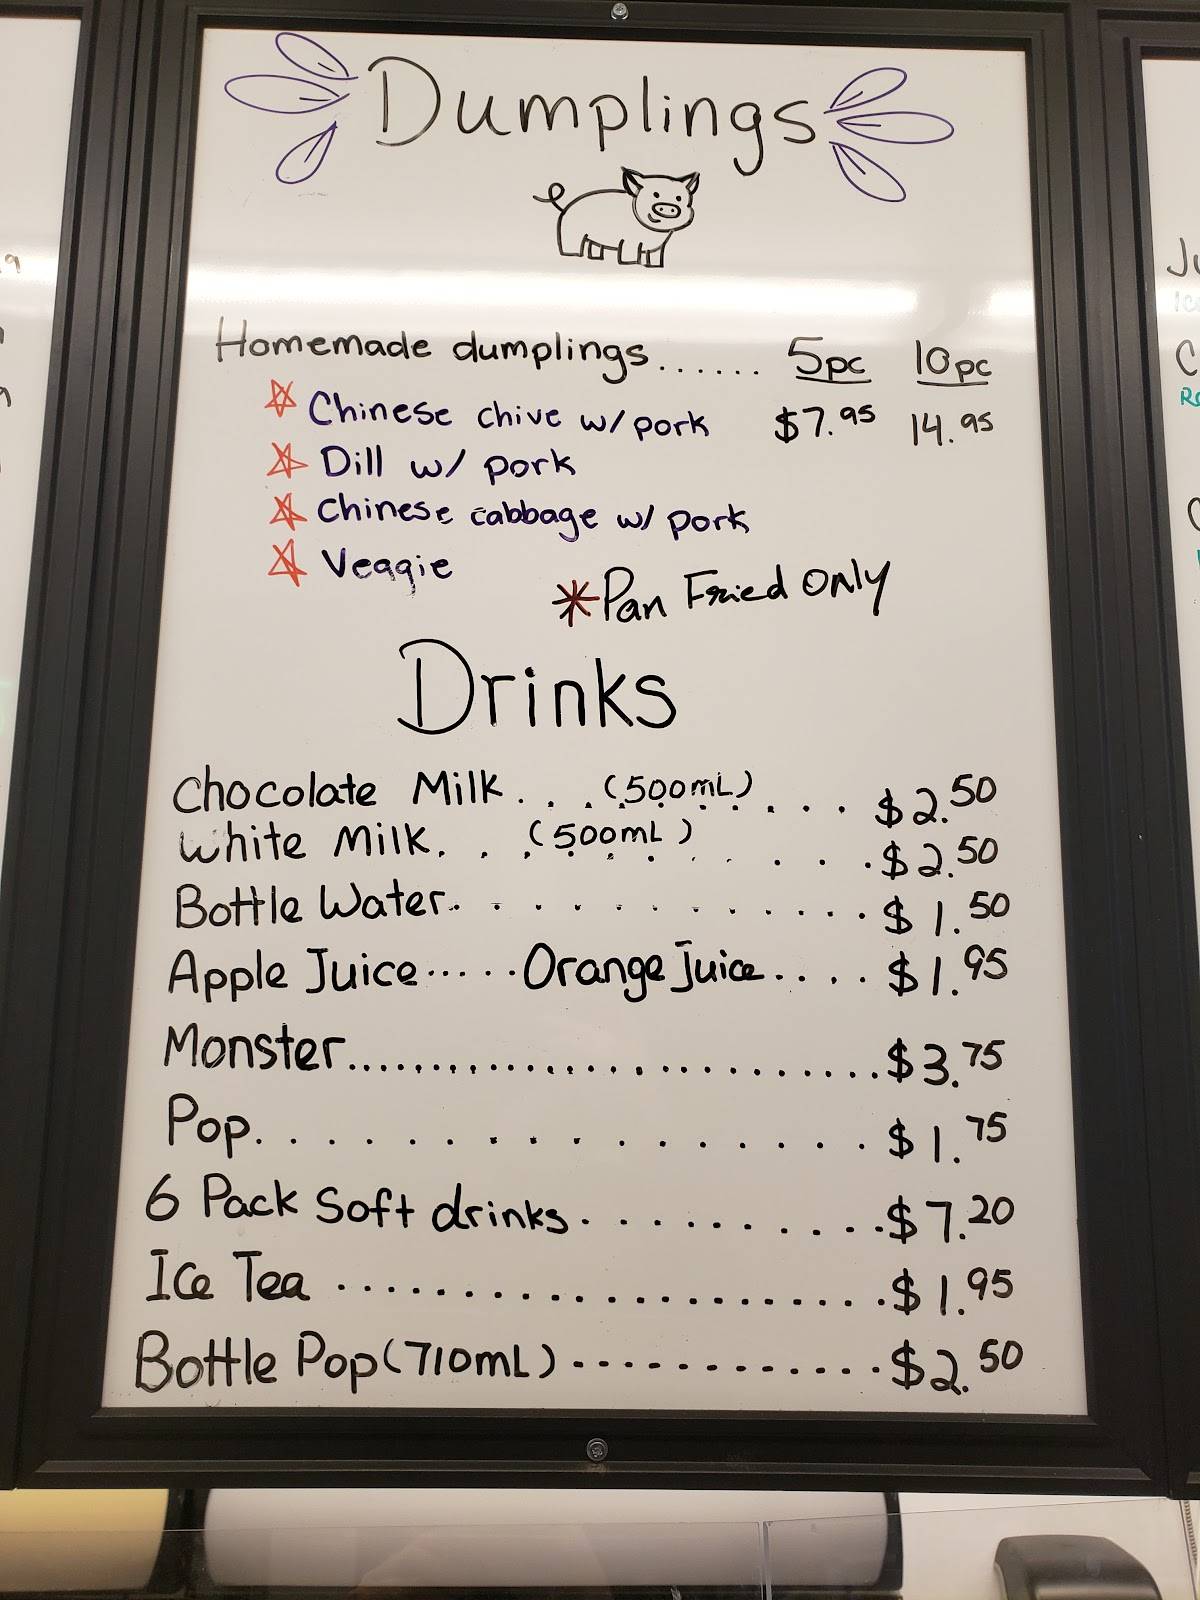 Dumplings
Homemade dumplings...... 5pc 10pc
Chinese chive w/pork $7.95 14.95
Dill w/ pork
Chinese cabbage w/ pork
Veggie
*Pan Fried Only
Drinks
Chocolate Milk...(500mL)..... $2.50
White Milk...(500mL)..... $2.50
Bottle Water............. $1.50
Apple Juice.....Orange Juice.... $1.95
Monster.......................... $3.75
Pop.................. $1.75
6 Pack Soft drinks........... $7.20
Ice Tea ...................... $1.95
Bottle Pop (710mL)............. $2.50